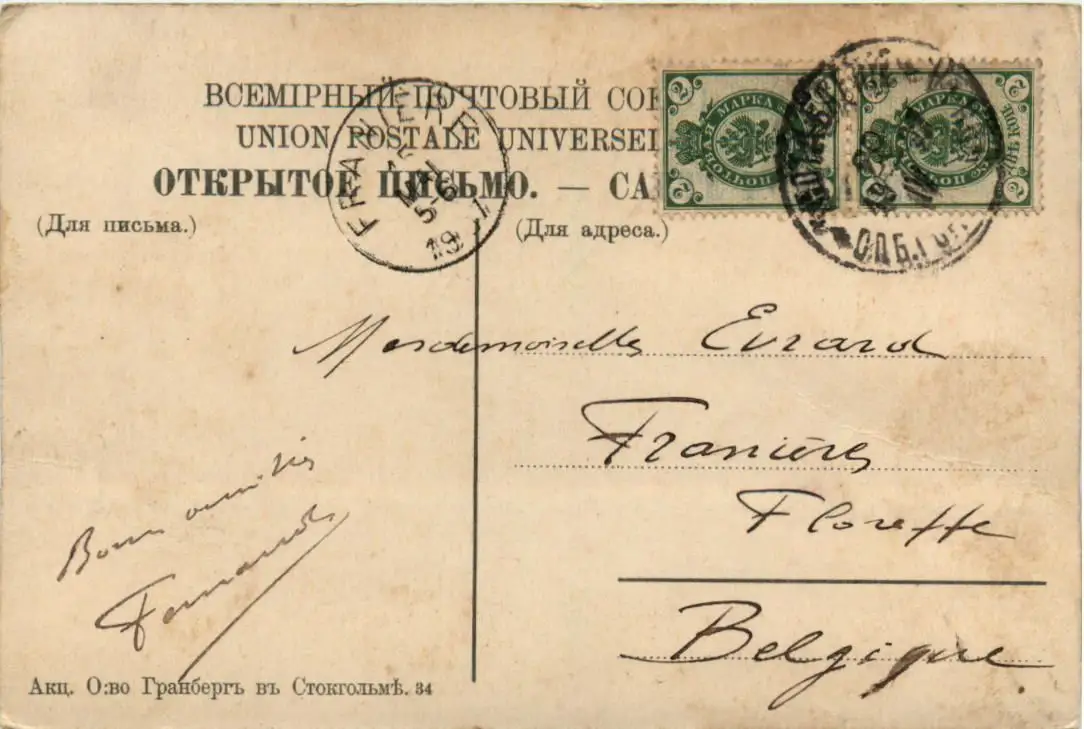 ВСЕМІРНЫЙ ПОЧТОВЫЙ СОЮ
UNION POSTALE UNIVERSEL
ОТКРЫТОЕ ПИСЬМО. — CA
(Для письма.)
(Для адреса.)
2 2
МАРКА
2
2 МАРКА
2
FRANIERE
5-6
19
С.П.Б.
Mesdemoiselles Evrard
Franières
Floreffe
Belgique
Bonnes amitiés
Fernand
Акц. О:во Гранбергъ въ Стокгольмѣ. 34